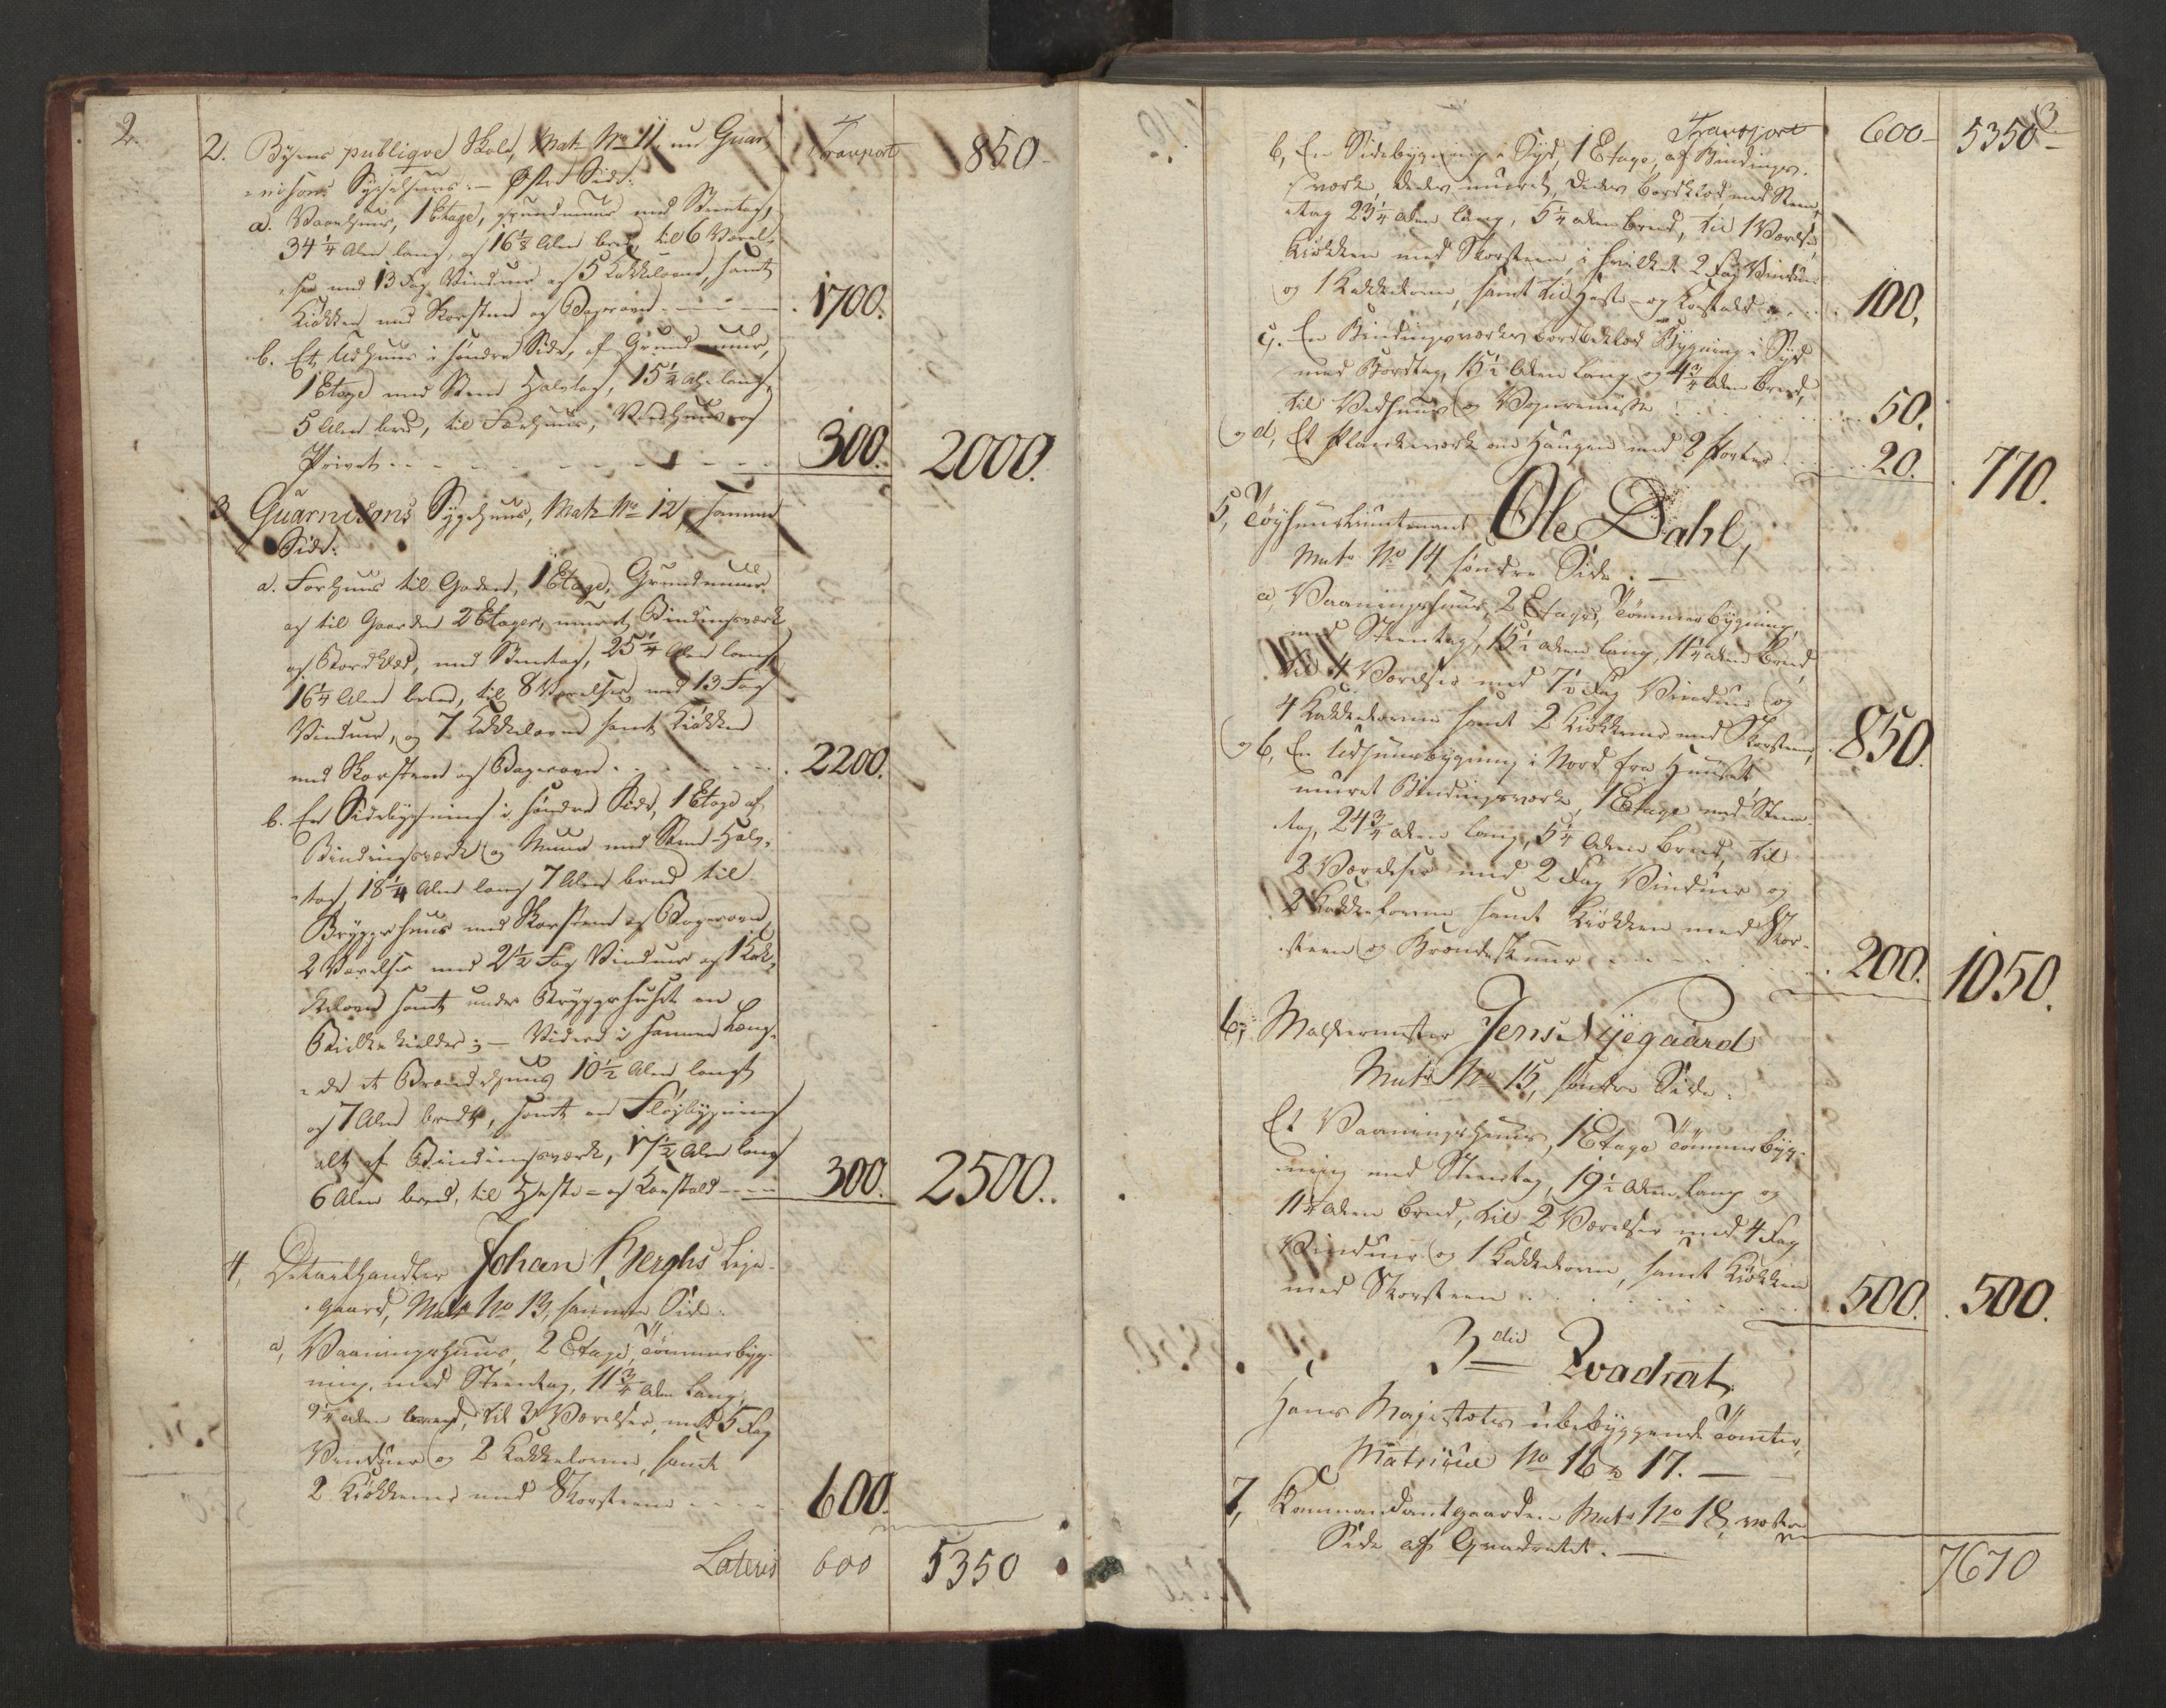 2.
Transport 850-
2. Byens publiqve Skole, Matr No 11, ved Guar-
nisons Sygehuus:- Østre Side:
a. Vaanhuus, 1 Etage, grundmuur med Steentag,
34 1/4 Alen lang, og 16 1/8 Alen bred, til 6 Værel-
ser med 13 Fag Vinduer og 5 Kakkelovne, samt
Kiøkken med Skorsteen og Bagerovn - - - 1700.
b. Et Udhuus i søndre Side, af Grundmuur,
1 Etage med Steen Halvtag, 15 1/2 Al. lang,
5 Alen bred, til Fæehuus, Vedhuus og
Privet - - - - - - - 300. 2000.
3 Guarnisons Sygehuus, Matr No 12, samme
Side:
a. Forhuus til Gaden, 1 Etage, Grundmuur
og til Gaarden 2 Etager, muret Bindingsværk
og Bordklæd, med Steentag, 25 1/4 Alen lang
16 1/4 Alen bred, til 8 Værelser med 13 Fag
Vinduer, og 7 Kakkelovne samt Kiøkken
med Skorsteen og Bagerovn - - - 2200.
b. En Sidebygning i søndre Side, 1 Etage af
Bindingsværk og Muur med Steen-Halv-
tag, 18 1/4 Alen lang 7 Alen bred til
Bryggerhuus med Skorsteen og Bagerovn,
2 Værelser med 2 1/2 Fag Vinduer og 1 Kak-
kelovn samt under Bryggerhuset en
Bielkekielder; - Videre i samme Læng-
de et Brændehuus 10 1/2 Alen langt
og 7 Alen bredt, samt en Fløjbygning
alt af Bindingsværk, 17 1/2 Alen lang
6 Alen bred, til Heste- og Koestald - - 300. 2500.
4, Detailhandler Johan Berghs Leje-
gaard, Matr No 13, samme Side.
a, Vaaningshuus, 2 Etage, Tømmerbyg-
ning, med Steentag, 11 3/4 Alen lang,
9 1/4 Alen bred, til 3 Værelser, med 5 Fag
Vinduer og 2 Kakkelovne, samt
2 Kiøkkener med Skorsteene - - - 600.
Lateris 600 5350
3
Transport 600- 5350-
b, En Sidebygning i Syd, 1 Etage, af Bindings-
værk, deels muret, deels bordklæd, med Steen-
tag 23 1/4 Alen lang, 5 1/4 Alen bred, til 1 Værelse
Kiøkken med Skorsteen i hvilket 2 Fag Vinduer
og 1 Kakkelovn, samt til Heste- og Koestald . . 100.
c. En Bindingsværkes bordbeklæd Bygning i Syd
med Bordtag, 15 1/2 Alen lang og 4 3/4 Alen bred,
til Vedhuus og Vognremisse . . . 50.
og d, Et Plankeværk om Haugen med 2 Porter . . . 20. 770.
5, Tøyhuuslieutenant Ole Dahl,
Matr No 14 søndre Side. -
a, Vaaningshuus, 2 Etager, Tømmerbygning,
med Steentag, 15 1/2 Alen lang, 11 1/4 Alen bred
til 4 Værelser med 7 1/2 Fag Vinduer og
4 Kakkelovne samt 2 Kiøkkener med Skorsteen, 850.
og b, En Udhuusbygning i Nord fra Huuset
muret Bindingsværk, 1 Etage med Steen-
tag, 24 3/4 Alen lang, 5 1/4 Alen bred, til
2 Værelser med 2 Fag Vinduer og
2 Kakkelovne samt Kiøkken med Skor-
steen og Brændeskuur . . . . 200. 1050.
6, Jens Nÿegaard
Matr No 15, søndre Side.
Et Vaaningshuus, 1 Etage Tømmerbyg-
ning med Steentag, 19 1/2 Alen lang og
11 1/4 Alen bred, til 2 Værelser med 4 Fag
Vinduer og 1 Kakkelovn, samt Kiøkken
med Skorsteen . . . . . . 500. 500.
3die Qvadrat.
Hans Majestæts ubebyggende Tomter,
Matricul No 16 & 17. -
7, Commandantgaarden Matr No 18, vestre
Side af Qvadratet. -
7670